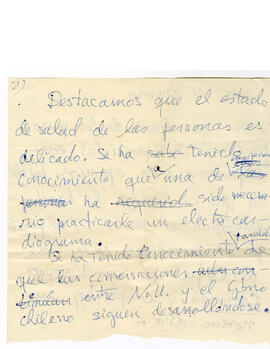 2)
Destacamos que el estado
de salud de las personas es
delicado. Se ha sabi tenido
conocimiento que a una de las
personas ha requerido sido necesa-
rio practicarle un electro car-
diograma.
Se ha tenido conocimiento de
que las conversaciones aun con-
tinúan entre Noll. y el Gbno
chileno siguen desarrollándose.